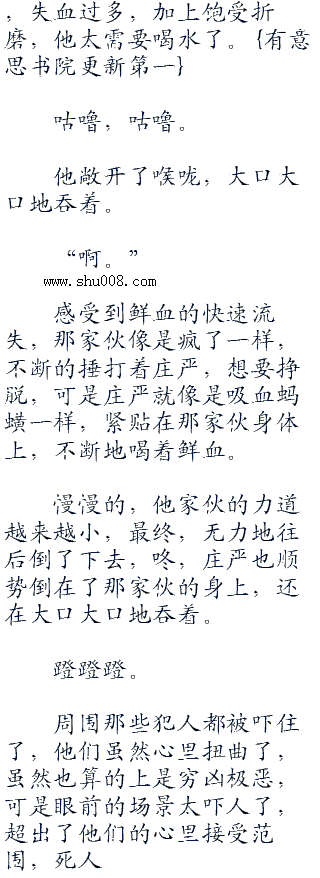 ，失血过多，加上饱受折
磨，他太需要喝水了。{有意
思书院更新第一}
咕噜，咕噜。
他敞开了喉咙，大口大
口地吞着。
“啊。”
www.shu008.com
感受到鲜血的快速流
失，那家伙像是疯了一样，
不断的捶打着庄严，想要挣
脱，可是庄严就像是吸血蚂
蟥一样，紧贴在那家伙身体
上，不断地喝着鲜血。
漫漫的，他家伙的力道
越来越小，最终，无力地往
后倒了下去，咚，庄严也顺
势倒在了那家伙的身上，还
在大口大口地吞着。
蹬蹬蹬。
周围那些犯人都被吓住
了，他们虽然心里扭曲了，
虽然也算的上是穷凶极恶，
可是眼前的场景太吓人了，
超出了他们的心里接受范
围，死人